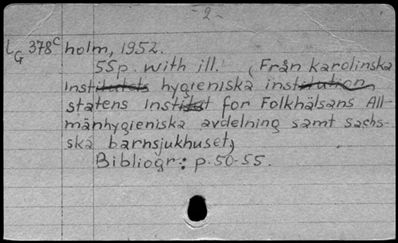 -2-
LG 378c holm, 1952.
55p. with ill. (Från Karolinska
Institutets hygieniska institution,
statens Institut for Folkhälsans All-
mänhygieniska avdelning samt sachs-
ska barnsjukhuset)
Bibliogr: p. 50-55.